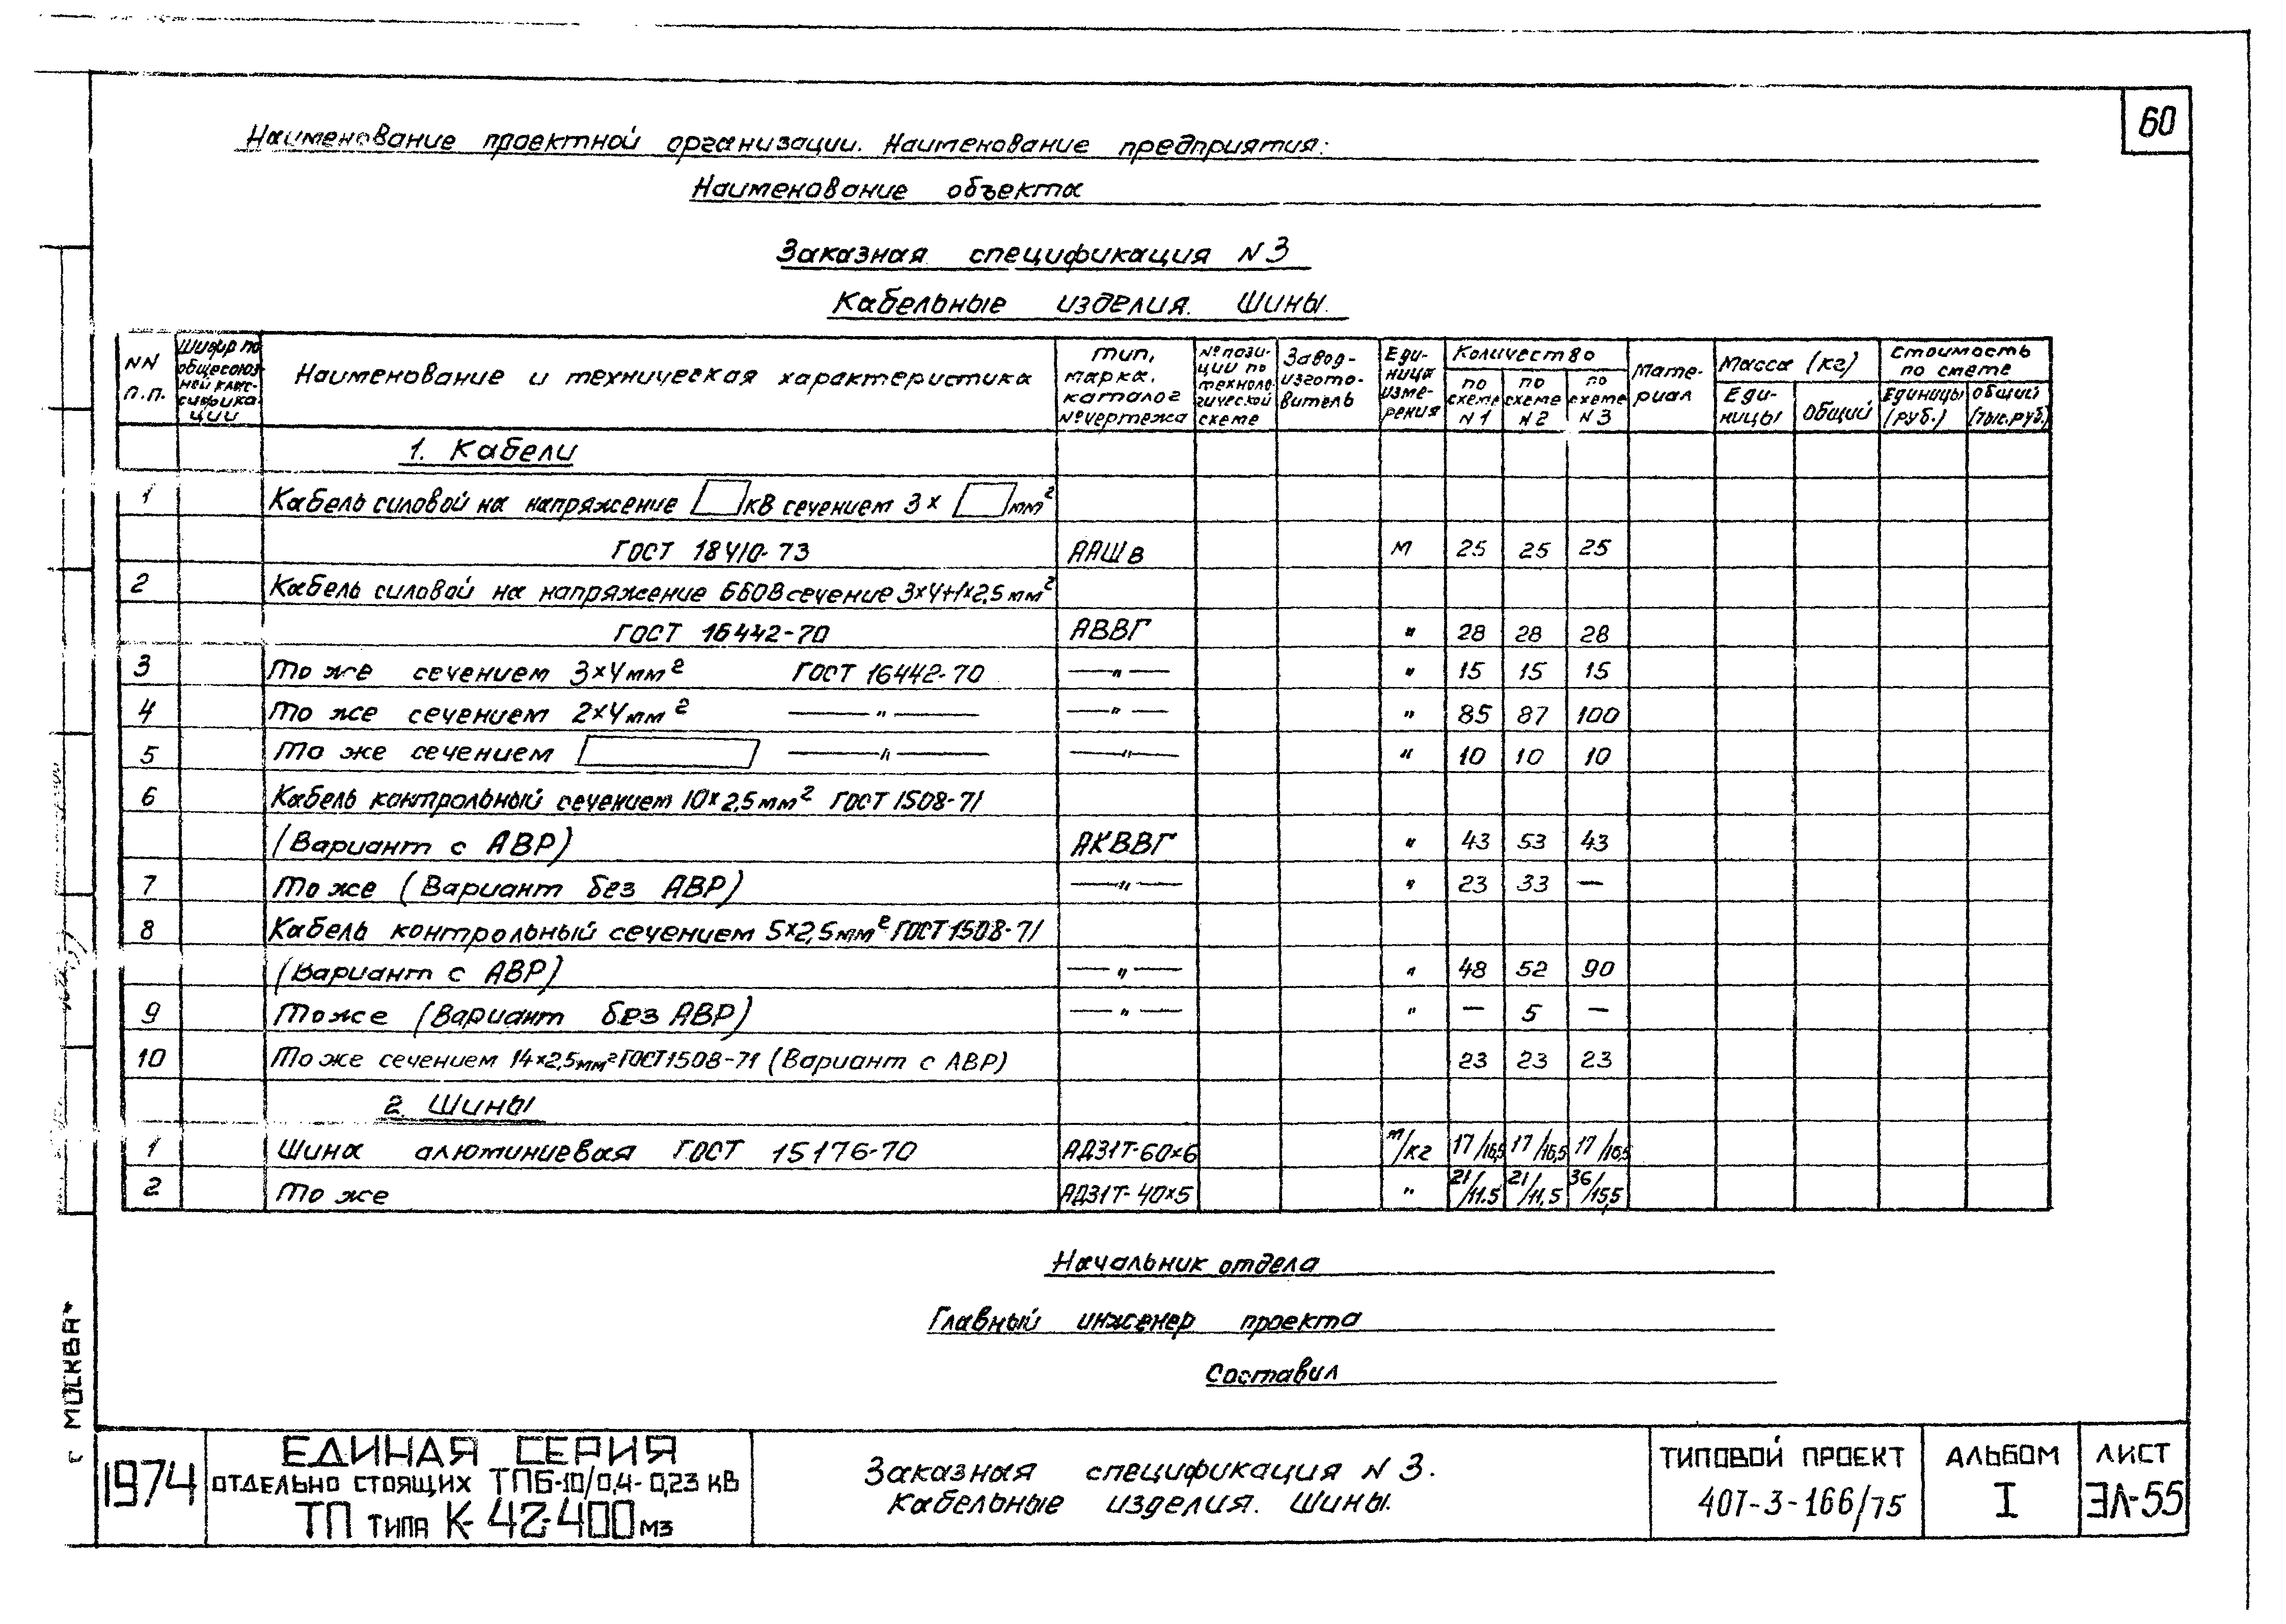 60
Наименование проектной организации. Наименование предприятия:
Наименование объекта
Заказная спецификация N 3
Кабельные изделия. Шины.
NN п.п. | Шифр по общесоюзной классификации | Наименование и техническая характеристика | Тип, марка, каталог № чертежа | № позиции по технологической схеме | Завод-изготовитель | Единица измерения | Количество по схеме N1 | по схеме N2 | по схеме N3 | Материал | Масса (кг) Единицы | Общий | Стоимость по смете Единицы (руб.) | Общий (тыс.руб.)
1. Кабели
1 Кабель силовой на напряжение кВ сечением 3 × мм²
ГОСТ 18410-73 ААШв м 25 25 25
2 Кабель силовой на напряжение 660В сечение 3×4+1×2,5 мм²
ГОСТ 16442-70 АВВГ " 28 28 28
3 То же сечением 3×4 мм² ГОСТ 16442-70 —"— " 15 15 15
4 То же сечением 2×4 мм² —"— —"— " 85 87 100
5 То же сечением —"— —"— " 10 10 10
6 Кабель контрольный сечением 10×2,5 мм² ГОСТ 1508-71
(Вариант с АВР) АКВВГ " 43 53 43
7 То же (Вариант без АВР) —"— " 23 33 —
8 Кабель контрольный сечением 5×2,5 мм² ГОСТ 1508-71
(Вариант с АВР) —"— " 48 52 90
9 То же (Вариант без АВР) —"— " — 5 —
10 То же сечением 14×2,5 мм² ГОСТ 1508-71 (Вариант с АВР) 23 23 23
2. Шины
1 Шина алюминиевая ГОСТ 15176-70 АД31Т-60×6 м/кг 17/16,5 17/16,5 17/16,5
2 То же АД31Т-40×5 " 21/11.5 21/11,5 36/15,5
Начальник отдела
Главный инженер проекта
Составил
г МОСКВА
1974
ЕДИНАЯ СЕРИЯ
ОТДЕЛЬНО СТОЯЩИХ ТПБ-10/0,4-0,23 КВ
ТП ТИПА К-42-400 МЗ
Заказная спецификация N 3.
Кабельные изделия. Шины.
ТИПОВОЙ ПРОЕКТ
407-3-166/75
АЛЬБОМ
I
ЛИСТ
ЭЛ-55